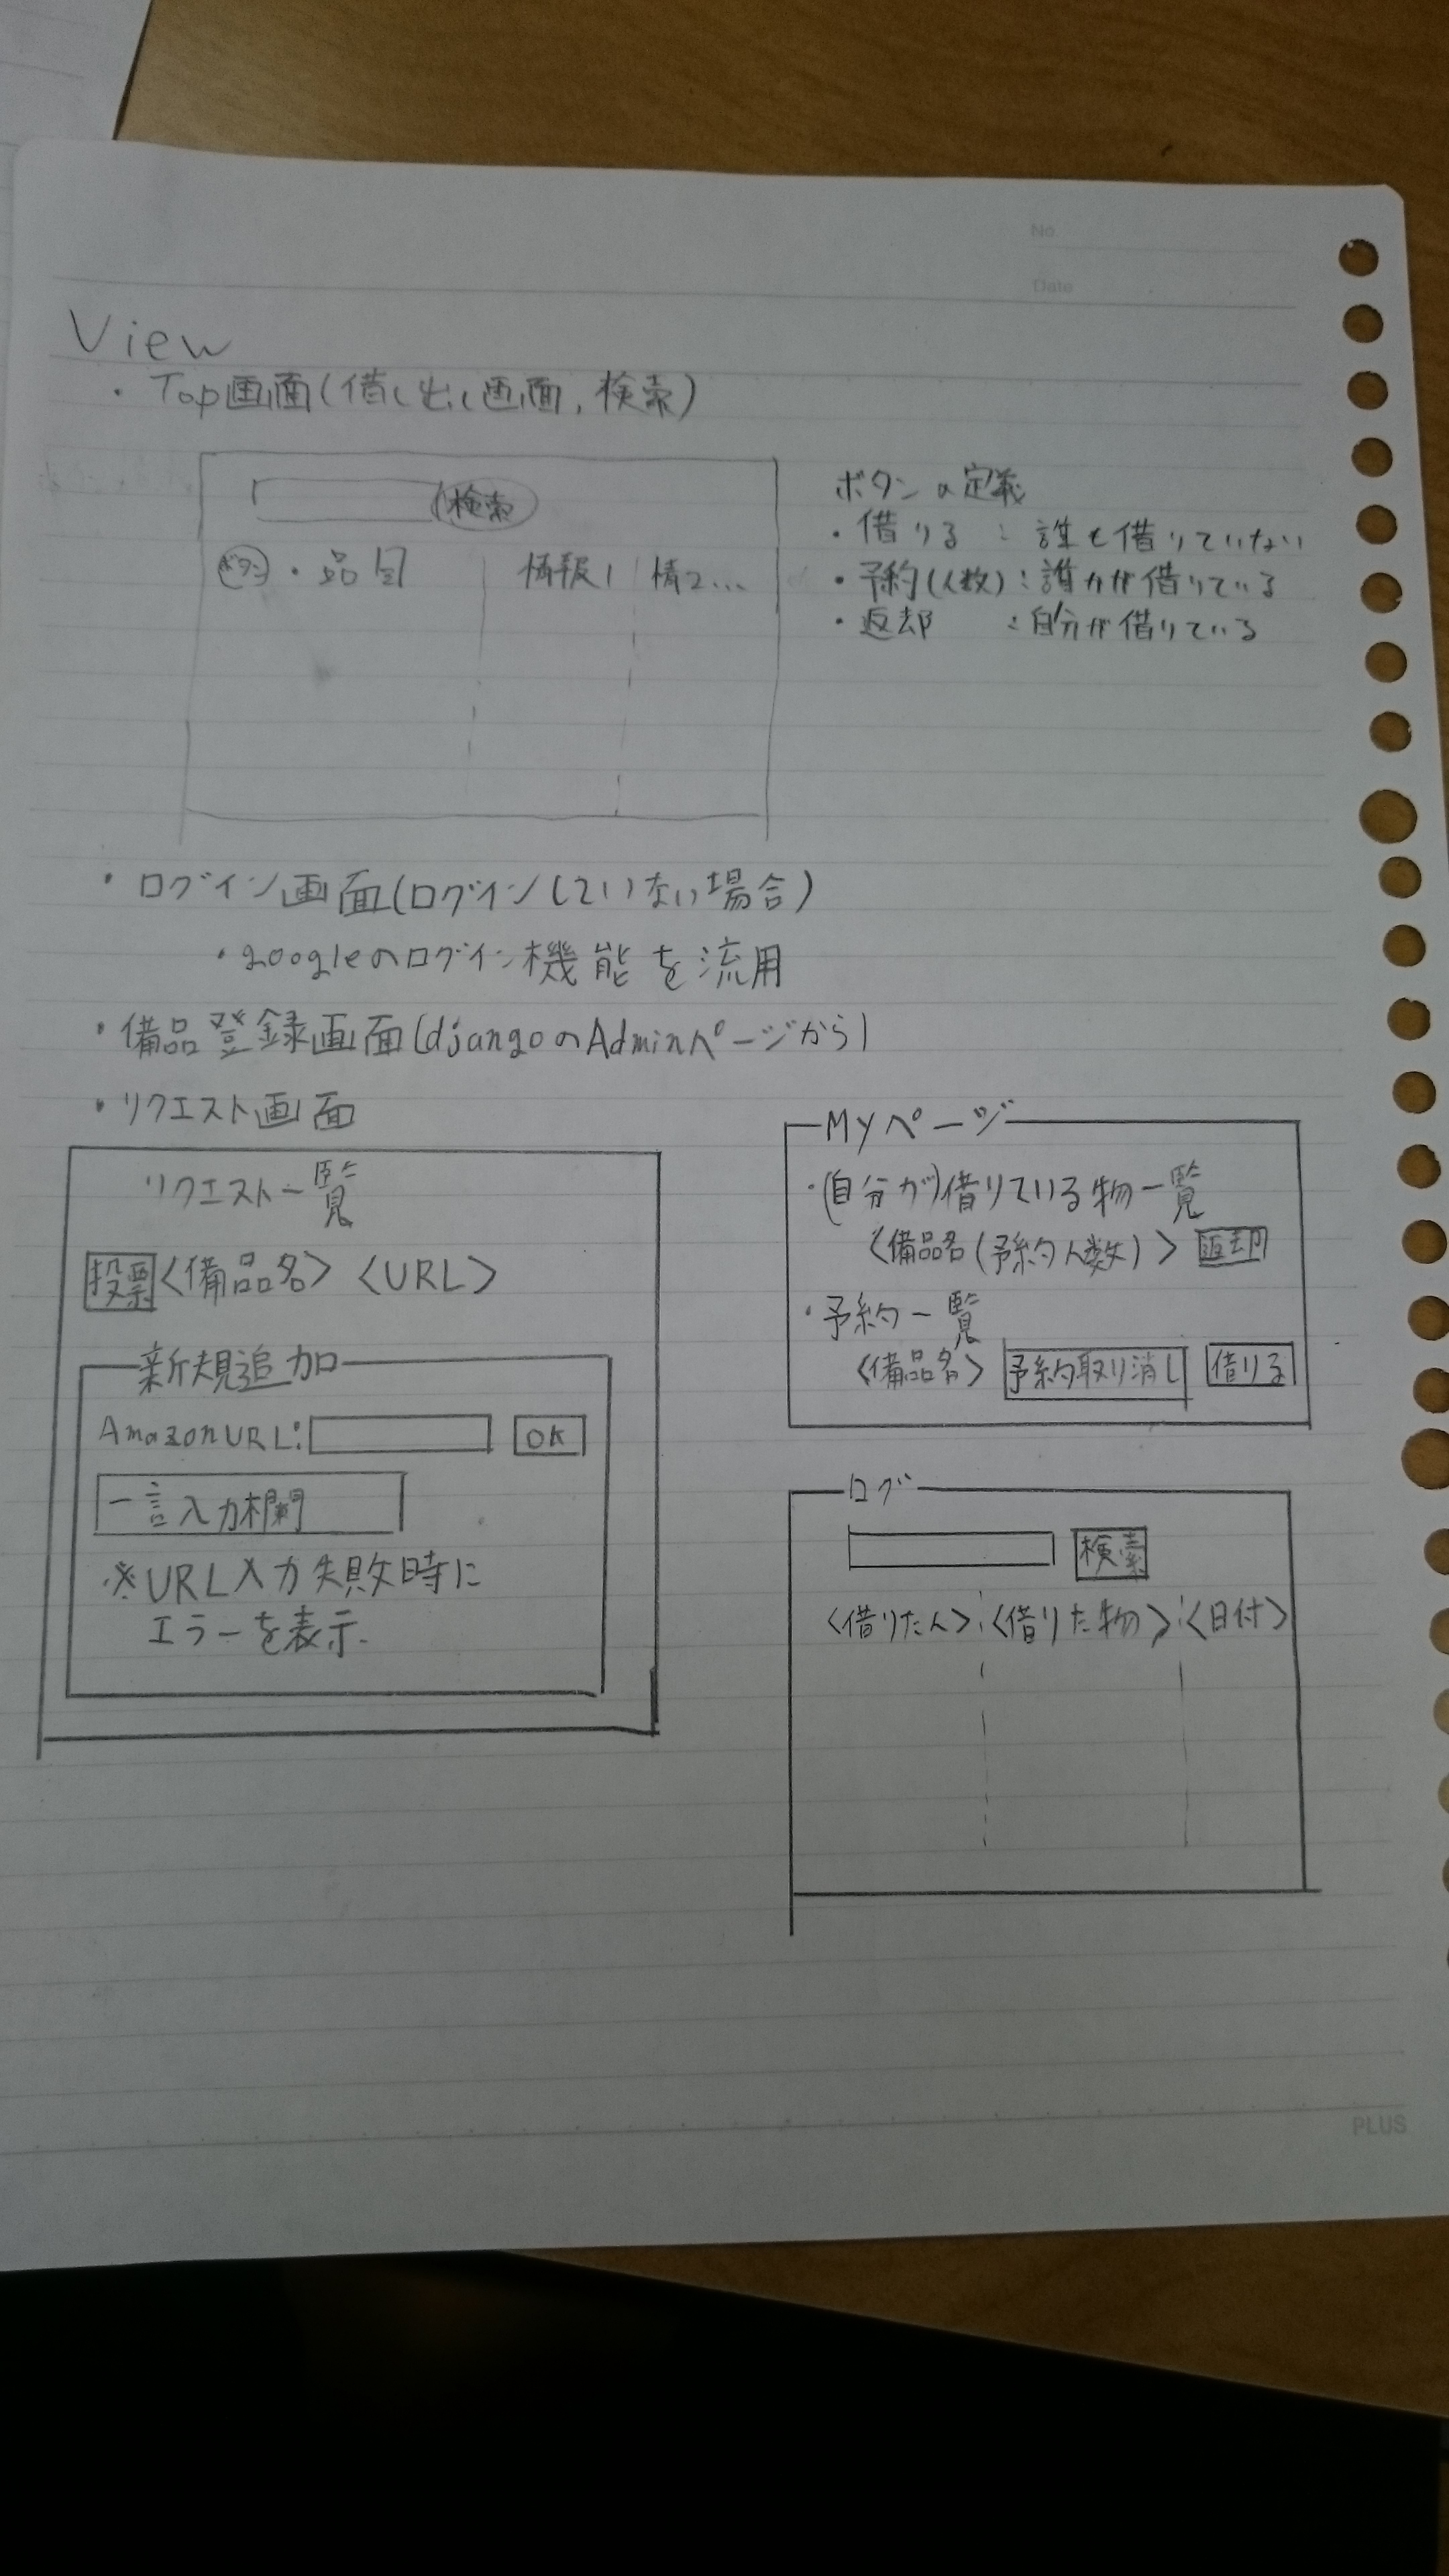 No.
Date
View
・Top画面(借し出し画面,検索)
検索
ボタン ・品目 情報1 情2...
ボタンの定義
・借りる : 誰も借りていない
・予約(人数) : 誰かが借りている
・返却 : 自分が借りている
・ログイン画面(ログインしていない場合)
・googleのログイン機能を流用
・備品登録画面(djangoのAdminページから)
・リクエスト画面
リクエスト一覧
投票 <備品名> <URL>
新規追加
AmazonURL: OK
一言入力欄
※URL入力失敗時に
エラーを表示.
Myページ
・(自分が)借りている物一覧
<備品名(予約人数)> 返却
・予約一覧
<備品名> 予約取り消し 借りる
ログ
検索
<借りた人> <借りた物> <日付>
PLUS